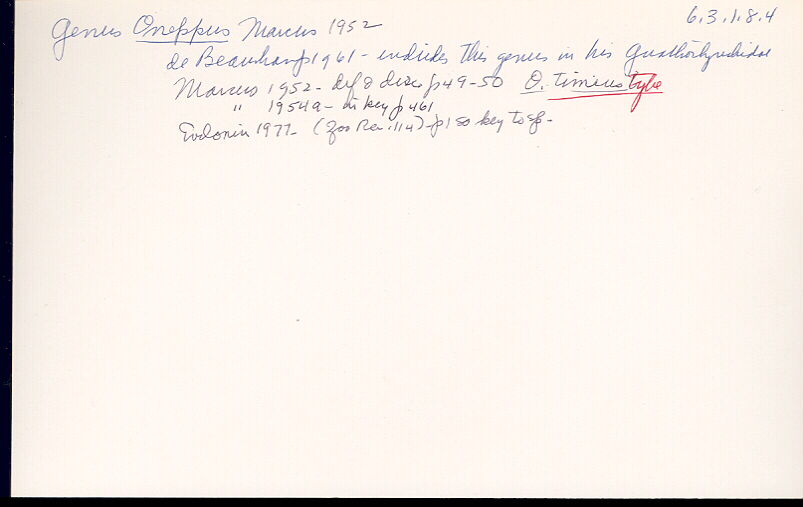 6.3.1.8.4
Genus Oneppus Marcus 1952
de Beauchamp 1961 - includes this genus in his Gnathorhynchidae
Marcus 1952 - def & disc p 49-50 O. timeus type
" 1954a - in key p 461
Evdonin 1977 - (Zoo Rec. 114) - p 180 key to sp -